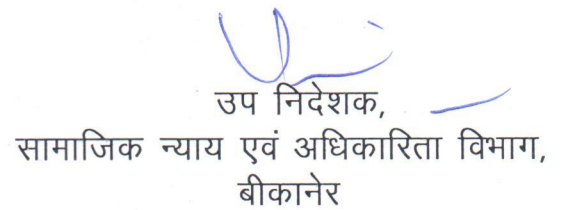 उप निदेशक,
सामाजिक न्याय एवं अधिकारिता विभाग,
बीकानेर